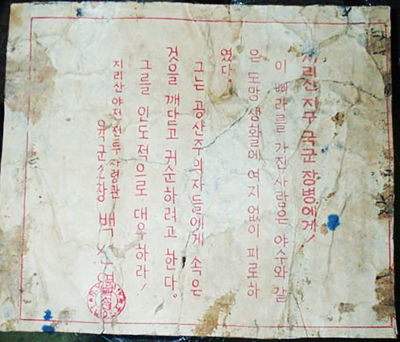 지리산 지구 국군 장병에게!
이 삐라를 가진 사람은 야수와 같
은 도망생활에 여지없이 피로하
였다.
그는 공산주의자들에게 속은
것을 깨닫고 귀순하려고 한다.
그를 인도적으로 대우하라!
지리산 야전전투사령관
육군소장 백